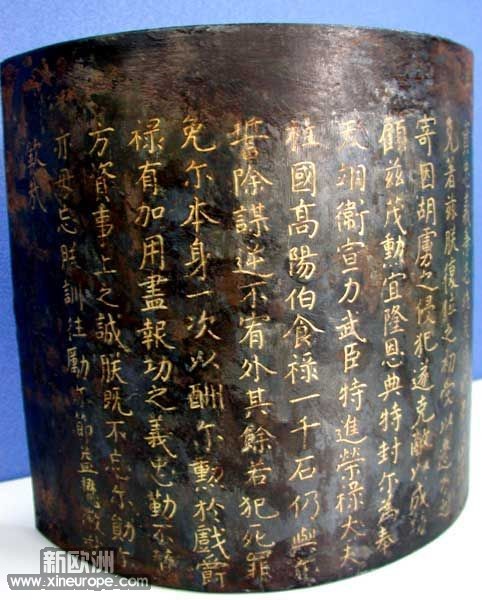 克著茲朕復位之初受以邊方之
寄因胡虜之侵犯遂克敵以成功
顧茲茂勲宜隆恩典特封尔為奉
天翊衛宣力武臣特進榮祿大夫
柱國高陽伯食祿一千石仍與尔
誓除謀逆不宥外其餘若犯死罪
免尔本身一次以酬尔勲於戲爵
祿有加用盡報功之義忠勤不替
方資事上之誠朕既不忘尔勛尔
亦毋忘朕訓往勵尔節益懋
欽哉
新欧洲
www.xineurope.com